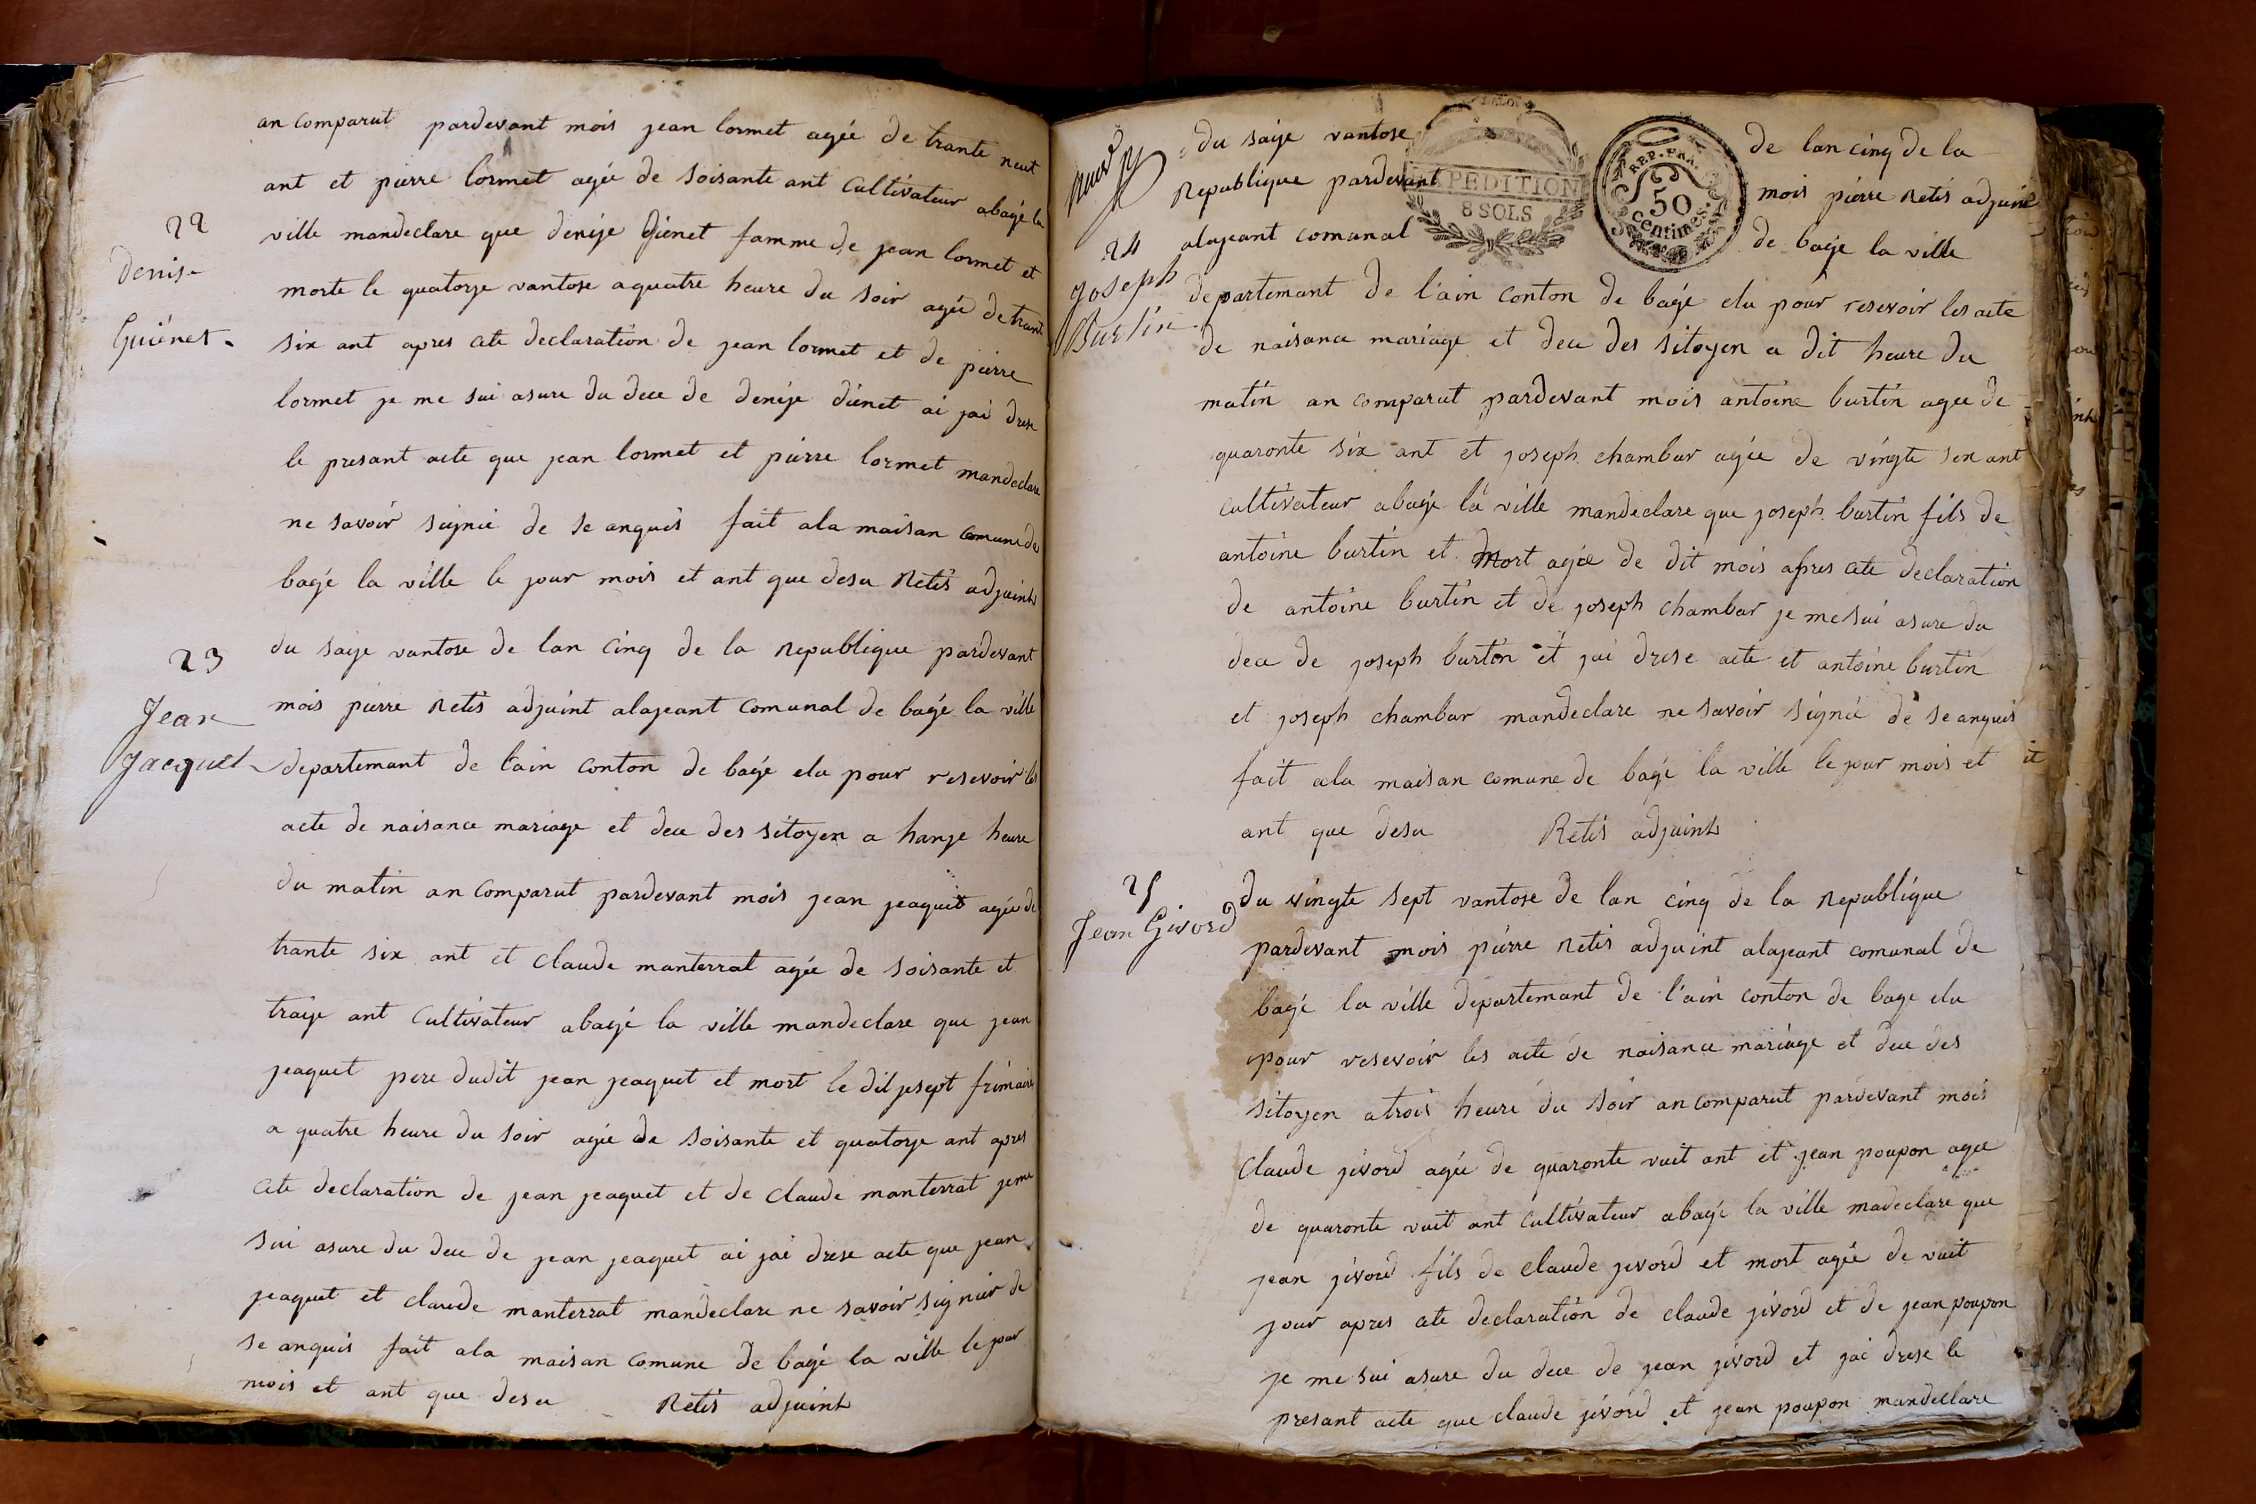 an comparut pardevant mois jean lormet agée de trante neuf
ant et pierre lormet agée de soisante ant cultivateur abagé la
22
ville mandeclare que denije diénet famme de jean lormet et
denis
morte le quatorze vantose a quatre heure du soir agée de trant
Guiénet
six ant apres cete declaration de jean lormet et de pierre
lormet je me sui asure du dece de denije diénet ai jai drese
le presant acte que jean lormet et pierre lormet mandeclare
ne savoir signié de se anquis fait ala maisan comune de
bagé la ville le jour mois et ant que desu Retis adjuint
du saize vantose de lan cinq de la Republique pardevant
23
mois pierre Retis adjuint alajeant comunal de bagé la ville
Jean
Jacquet
departemant de lain conton de bagé elu pour resevoir les
acte de naisance mariage et dece des sitoyen a hanze heure
du matin an comparut pardevant mois jean jeaquet agée de
trante six ant et claude manterrat agée de soisante et
traize ant cultivateur abagé la ville mandeclare que jean
jeaquet pere dudit jean jeaquet et mort le dit jesept frimaire
a quatre heure du soir agée de soisante et quatorze ant apres
cete declaration de jean jeaquet et de claude manterrat jeme
sui asure du dece de jean jeaquet ai jai drese acte que jean
jeaquet et claude manterrat mandeclare ne savoir signier de
se anquis fait ala maisan comune de bagé la ville le jour
mois et ant que desu Retis adjuint
du saize vantose de lan cinq de la
Republique pardevant mois pierre Retis adjuint
EXPEDITION
8 SOLS
REP. FRA.
50
centimes.
24
alajeant comunal de bagé la ville
joseph
Burtin
departemant de l'ain conton de bagé elu pour resevoir les acte
de naisance mariage et dece des sitoyen a dit heure du
matin an comparut pardevant mois antoine burtin agee de
quaronte six ant et joseph chambar agée de vingte sex ant
cultivateur abagé la ville mandeclare que joseph burtin fils de
antoine burtin et mort agée de dit mois apres cete declaration
de antoine burtin et de joseph chambar je me sui asure du
dece de joseph burtin et jai drese acte et antoine burtin
et joseph chambar mandeclare ne savoir signié de se anquis
fait ala maisan comune de bagé la ville le jour mois et
ant que desu Retis adjuint
25
Jean Givord
du vingte sept vantose de lan cinq de la Republique
pardevant mois pierre Retis adjuint alajeant comunal de
bagé la ville departemant de l'ain conton de bage elu
pour resevoir les acte de naisance mariage et dece des
sitoyen a trois heure du soir an comparut pardevant mois
claude jivord agée de quaronte vuit ant et jean poupon agee
de quaronte vuit ant cultivateur abagé la ville madeclare que
jean jivord fils de claude jivord et mort agée de vuit
jour apres cete declaration de claude jivord et de jean poupon
je me sui asure du dece de jean jivord et jai drese le
presant acte que claude jivord et jean poupon mandeclare